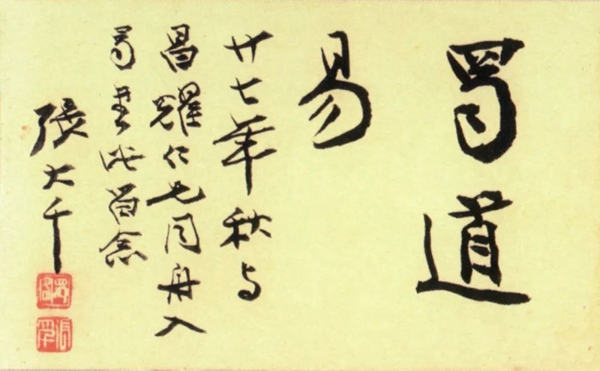 蜀道
易
廿七年秋与
昌耀仁兄同舟入
蜀書此留念
張大千